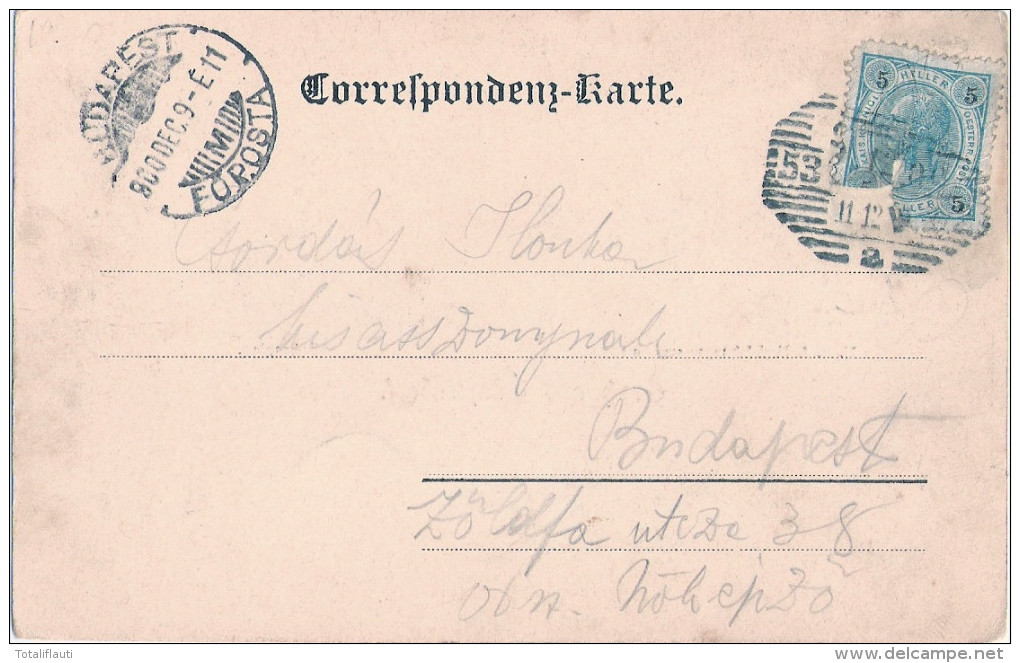 BUDAPEST
900 DEC. 9 - É 11
FŐPOSTA
Correspondenz-Karte.
5 HELLER 5
HELLER 5
53
11 12
Gordás Ilonka
kisasszonynak
Budapest
Zöldfa utcza 38
Nőképző
Totaliflauti
www.delcampe.net